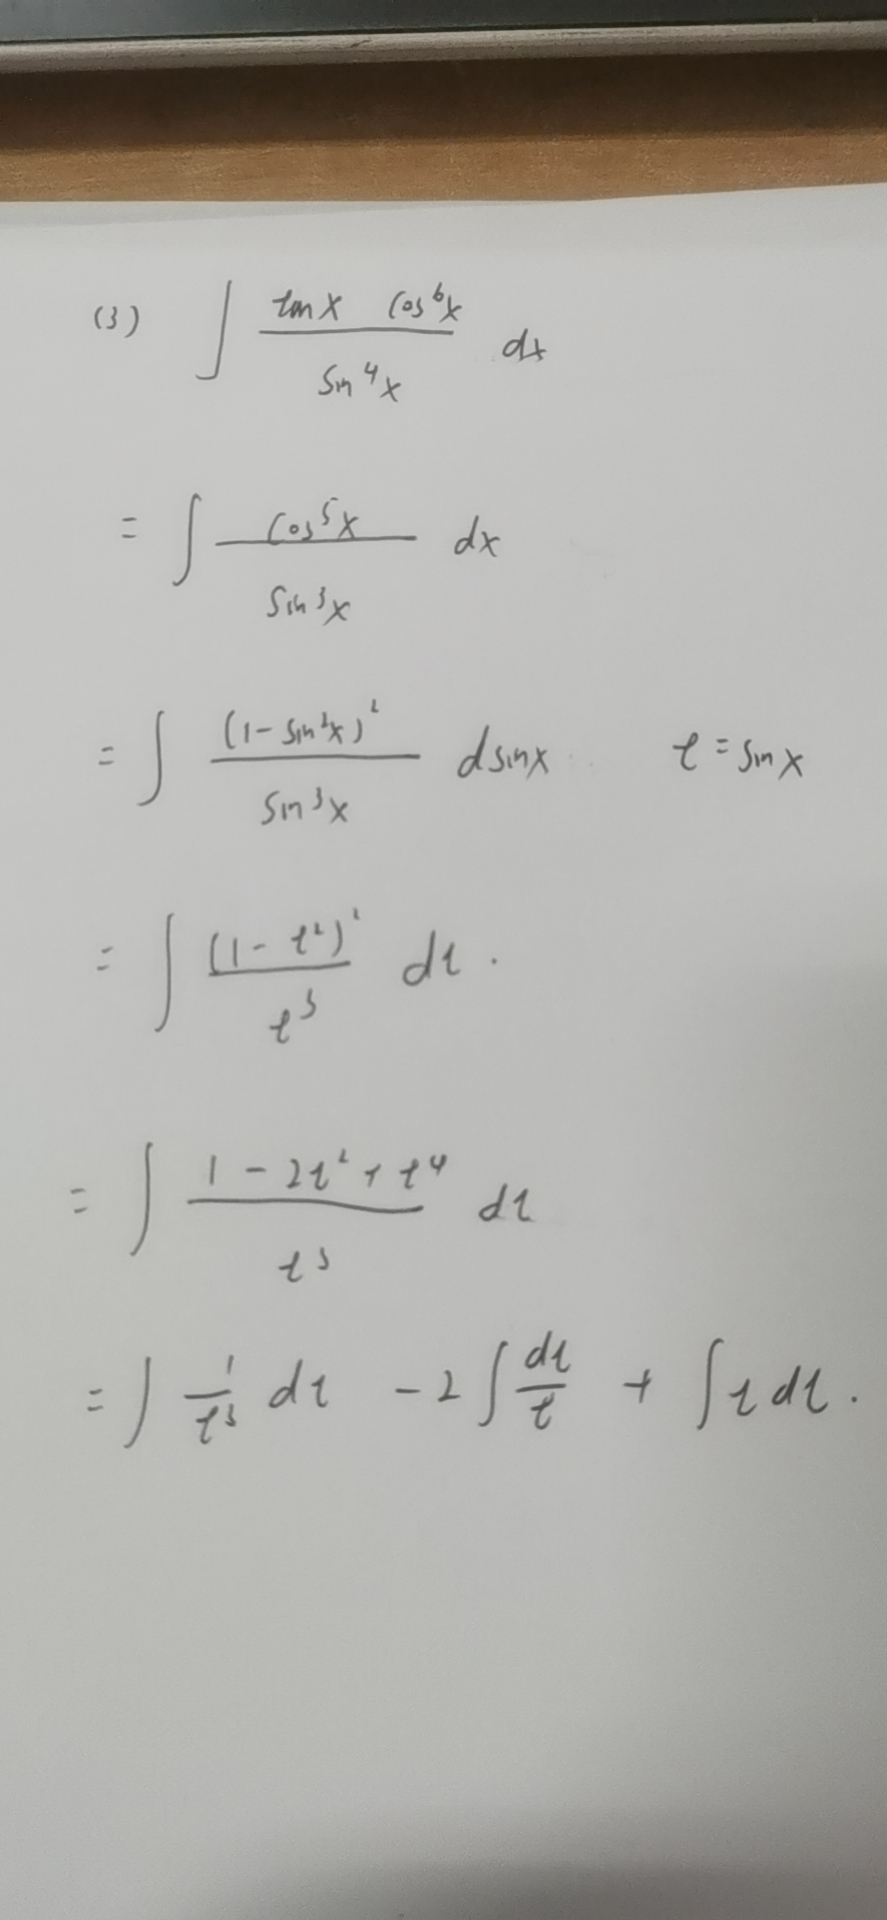 (3) ∫ (tan x cos⁶x)/(sin⁴x) dx
= ∫ (cos⁵x)/(sin³x) dx
= ∫ (1 - sin²x)²/(sin³x) dsinx t = sin x
= ∫ (1 - t²)²/t³ dt.
= ∫ (1 - 2t² + t⁴)/t³ dt
= ∫ 1/t³ dt - 2∫ dt/t + ∫ t dt.